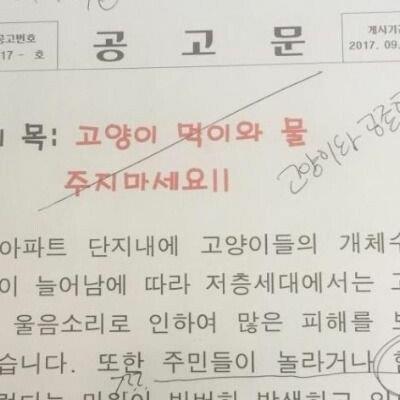 공고번호
17 - 호
공 고 문
게시기간
2017. 09.
목: 고양이 먹이와 물
주지마세요!!
고양이와
아파트 단지내에 고양이들의 개체수
이 늘어남에 따라 저층세대에서는
울음소리로 인하여 많은 피해를
습니다. 또한 주민들이 놀라거나
???
민원이 빈번히 발생하고